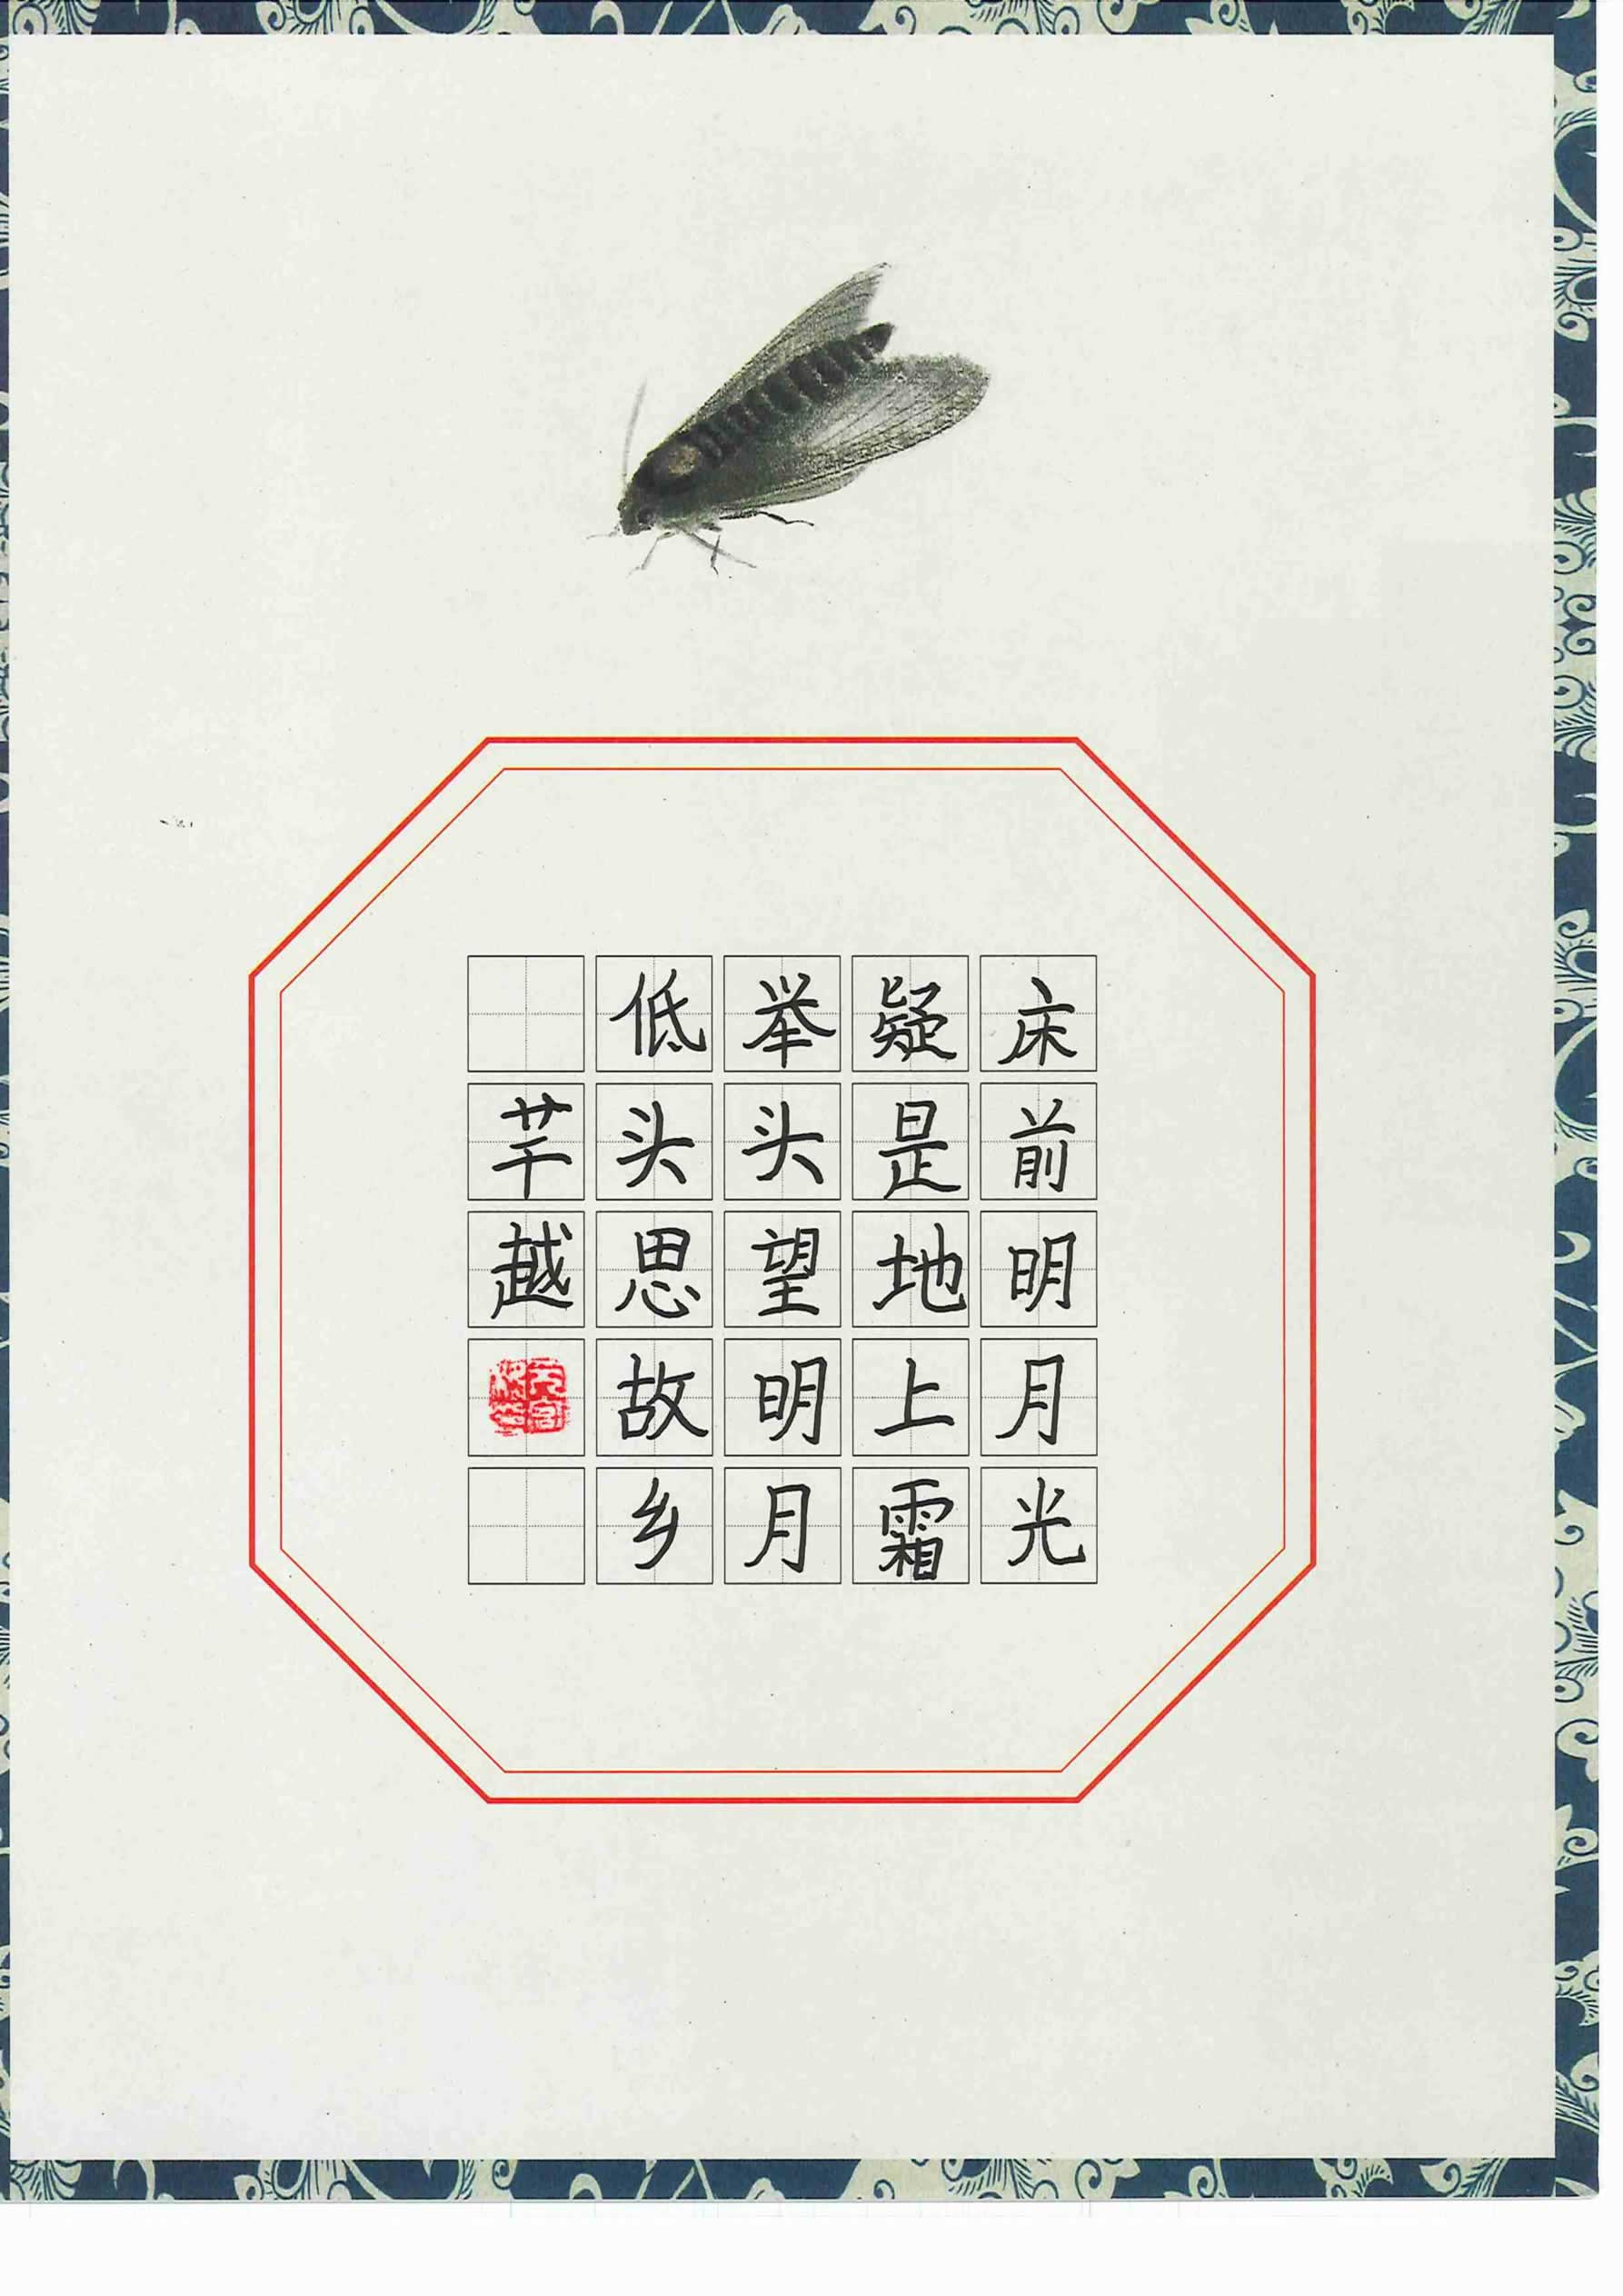 床前明月光
疑是地上霜
举头望明月
低头思故乡
芊越